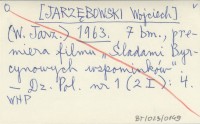 [JARZĘBOWSKI Wojciech]
(W. Jarz.) 1963. 7 bm., pre-
miera filmu „Śladami Byr-
cynowych wspominków"
— Dz. Pol. nr 1 (2 I): 4.
WHP